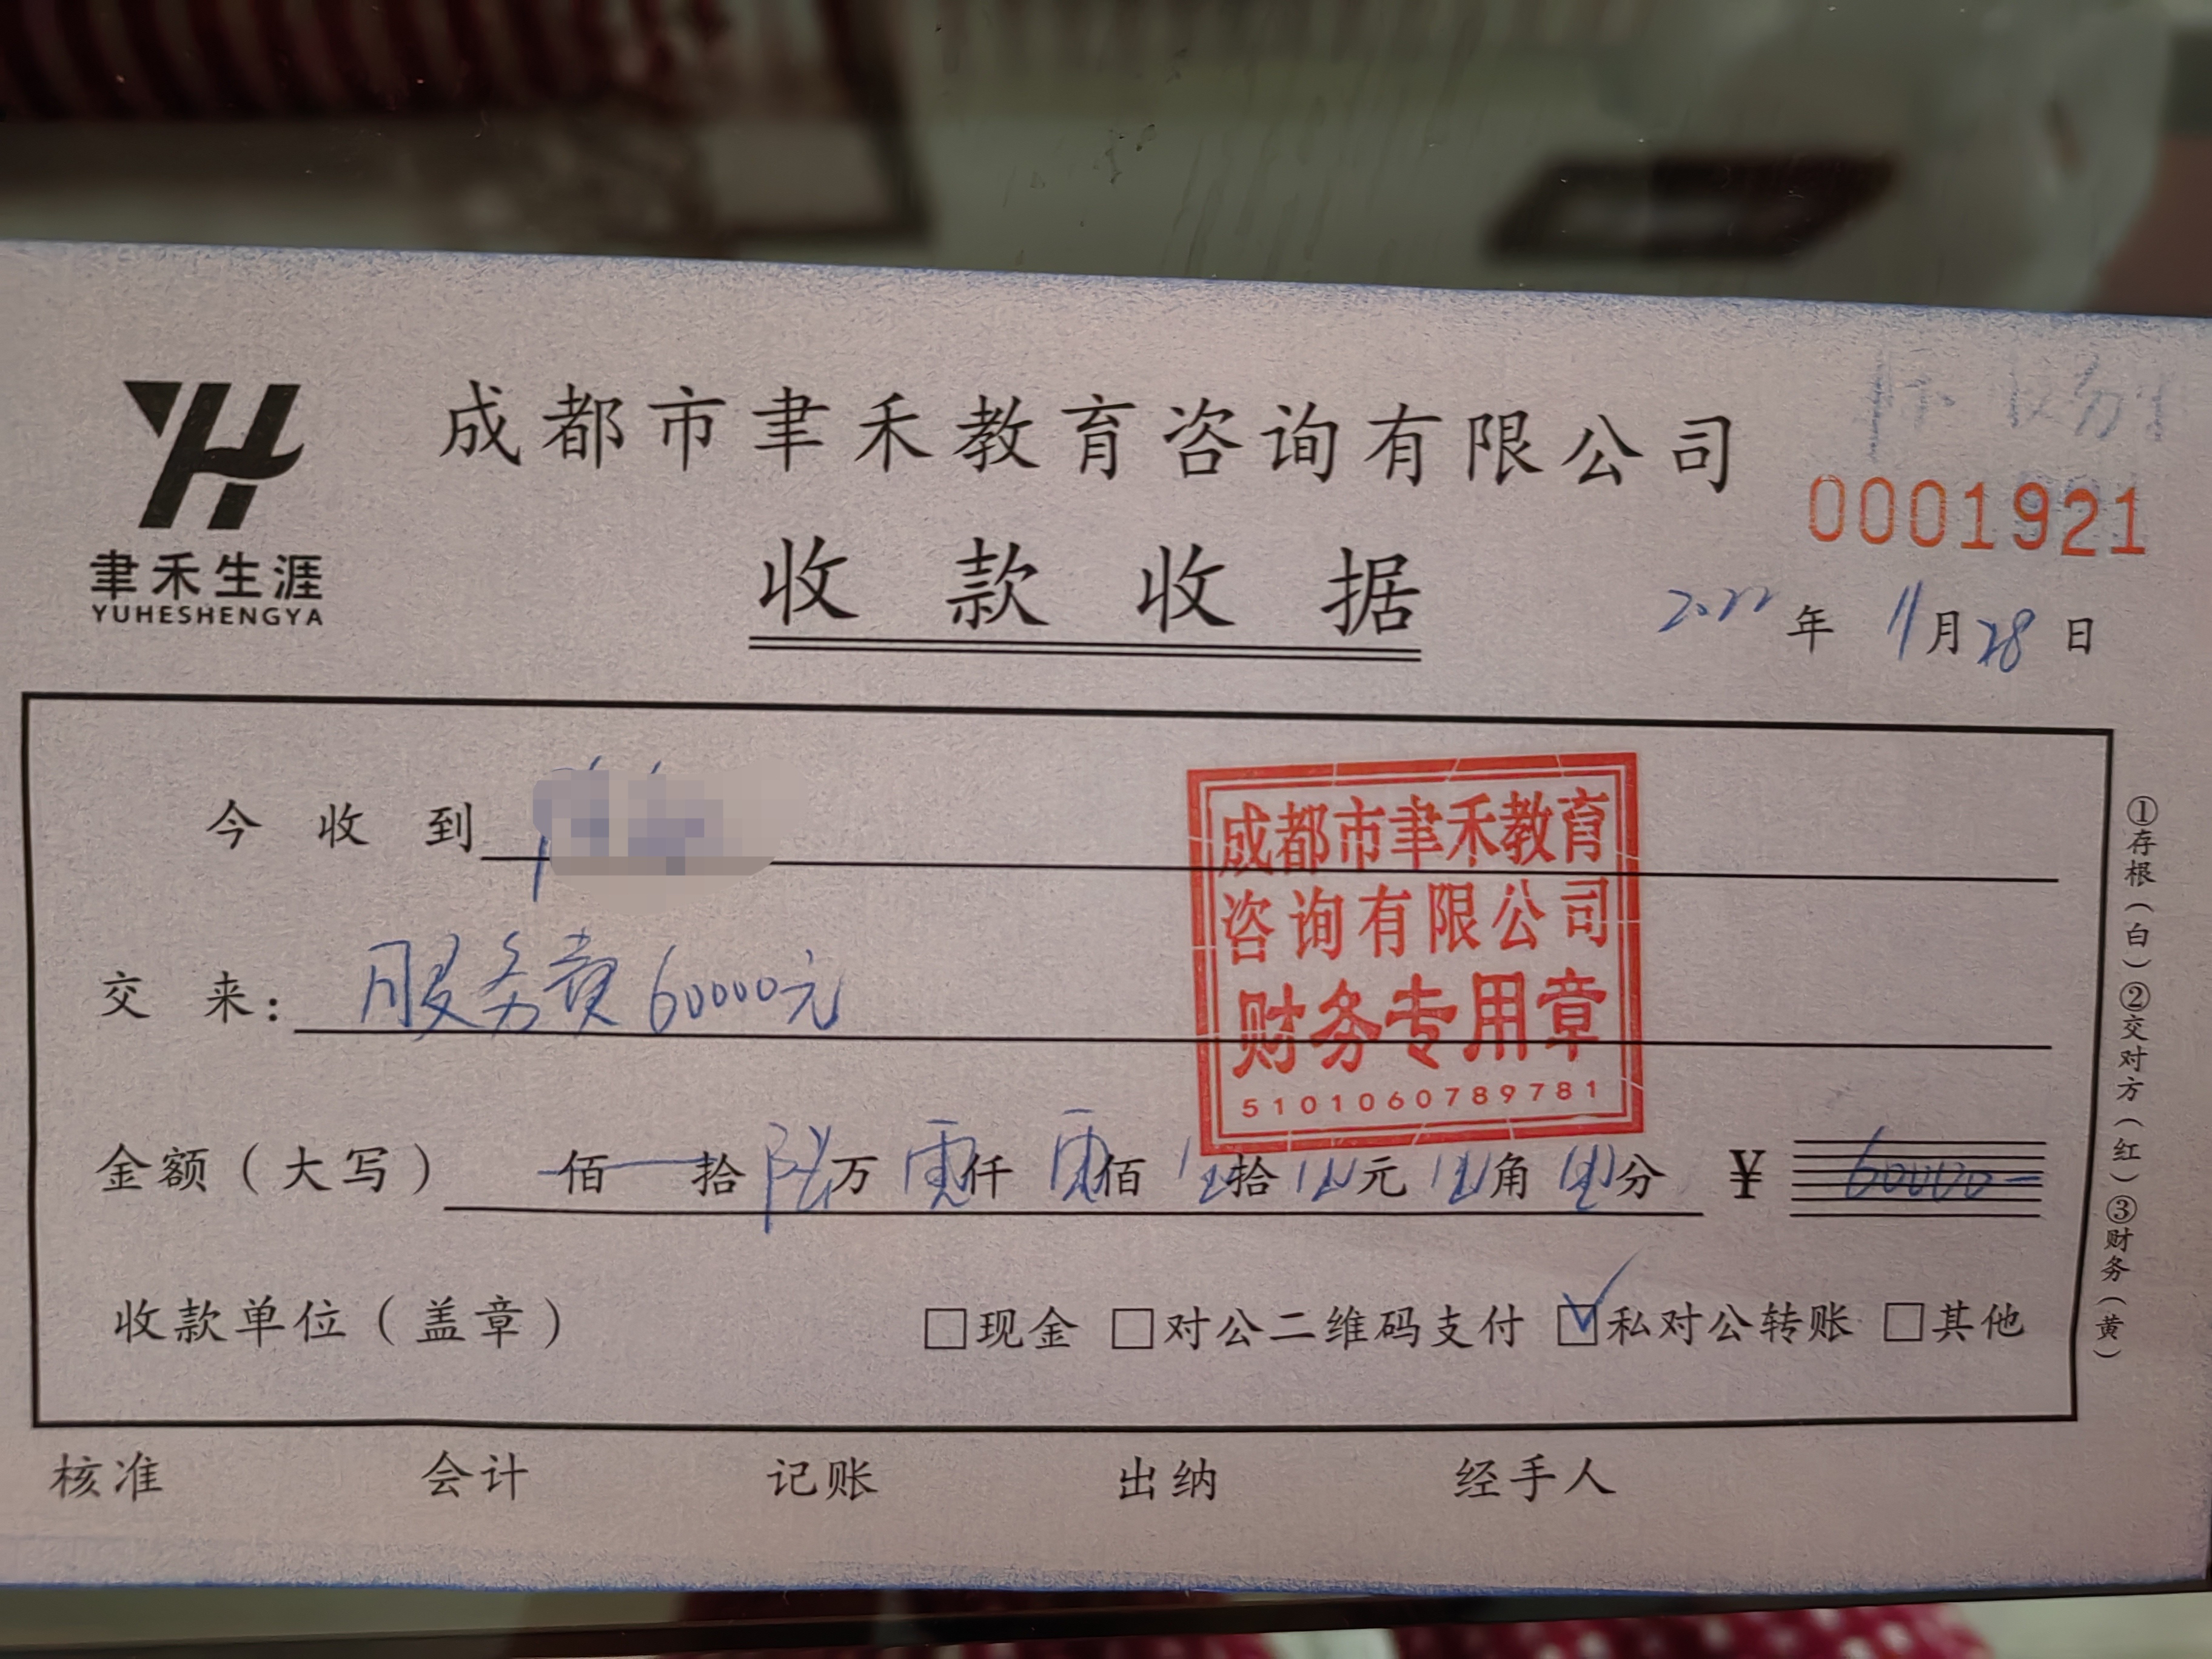 成都市聿禾教育咨询有限公司
聿禾生涯
YUHESHENGYA
0001921
收款收据
2022年11月28日
今收到
交来：服务费60000元
成都市聿禾教育
咨询有限公司
财务专用章
5101060789781
金额（大写） 佰 拾陆万零仟零佰零拾零元零角零分 ¥ 60000-
收款单位（盖章） □现金 □对公二维码支付 ☑私对公转账 □其他
①存根（白）②交对方（红）③财务（黄）
核准 会计 记账 出纳 经手人